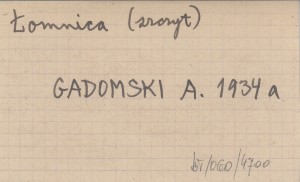 Łomnica (szczyt)
GADOMSKI A. 1934 a
/4700